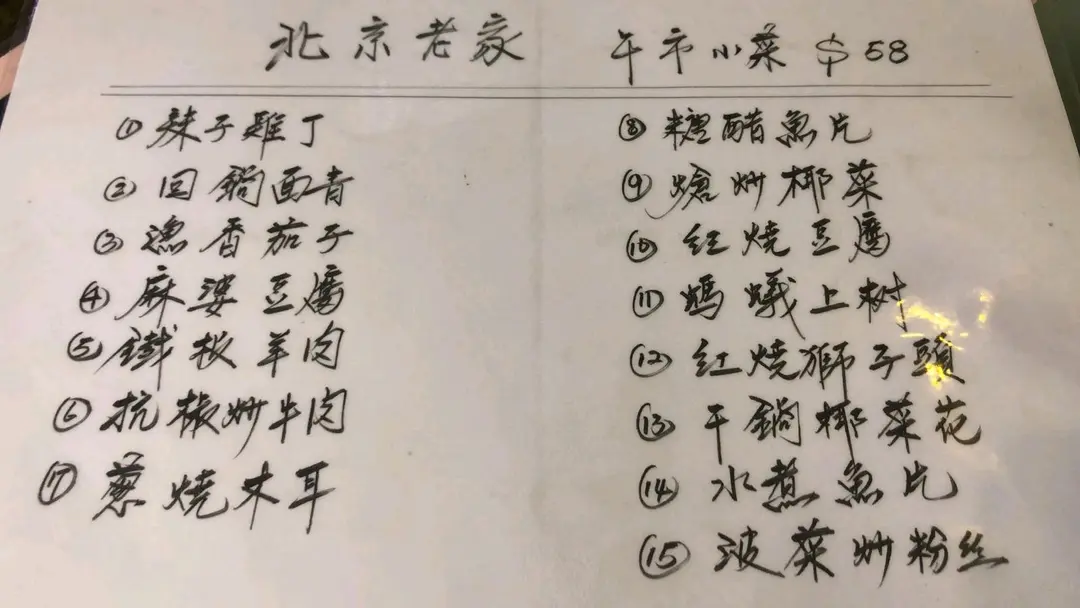 北京老家 午市小菜 $58
① 辣子雞丁
② 回鍋面青
③ 漁香茄子
④ 麻婆豆腐
⑤ 鐵板羊肉
⑥ 抗椒炒牛肉
⑦ 蔥燒木耳
⑧ 糖醋魚片
⑨ 熗炒椰菜
⑩ 紅燒豆腐
⑪ 螞蟻上树
⑫ 紅燒獅子頭
⑬ 干鍋椰菜花
⑭ 水煮魚片
⑮ 波菜炒粉丝